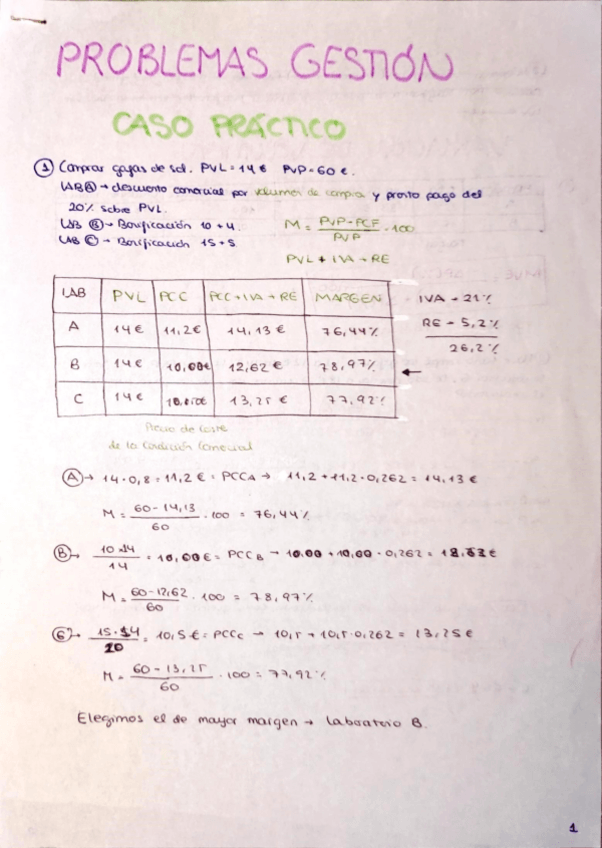 PROBLEMAS GESTIÓN
CASO PRÁCTICO
① Comprar gafas de sol. PVL = 14 € PVP = 60 €.
LAB Ⓐ → descuento comercial por volumen de compra y pronto pago del
20% sobre PVL.
LAB Ⓑ → Bonificación 10 + 4.
LAB Ⓒ → Bonificación 15 + 5.
M = (PVP - PCF) / PVP · 100
PVL + IVA + RE
LAB PVL PCC PCC + IVA + RE MARGEN
A 14 € 11,2 € 14,13 € 76,44%
B 14 € 10,00 € 12,62 € 78,97% ←
C 14 € 13,25 € 77,92%
IVA → 21%
RE → 5,2%
26,2%
Precio de coste
de la Condición Comercial
Ⓐ → 14 · 0,8 = 11,2 € = PCCA → 11,2 + 11,2 · 0,262 = 14,13 €
M = (60 - 14,13) / 60 · 100 = 76,44%
Ⓑ → (10 · 14) / 14 = 10,00 € = PCCB → 10,00 + 10,00 · 0,262 =
M = (60 - 12,62) / 60 · 100 = 78,97%
(15 · 14) / 20 = 10,5 € = PCCC → 10,5 + 10,5 · 0,262 = 13,25 €
M = (60 - 13,25) / 60 · 100 = 77,92%
Elegimos el de mayor margen → Laboratorio B.
1